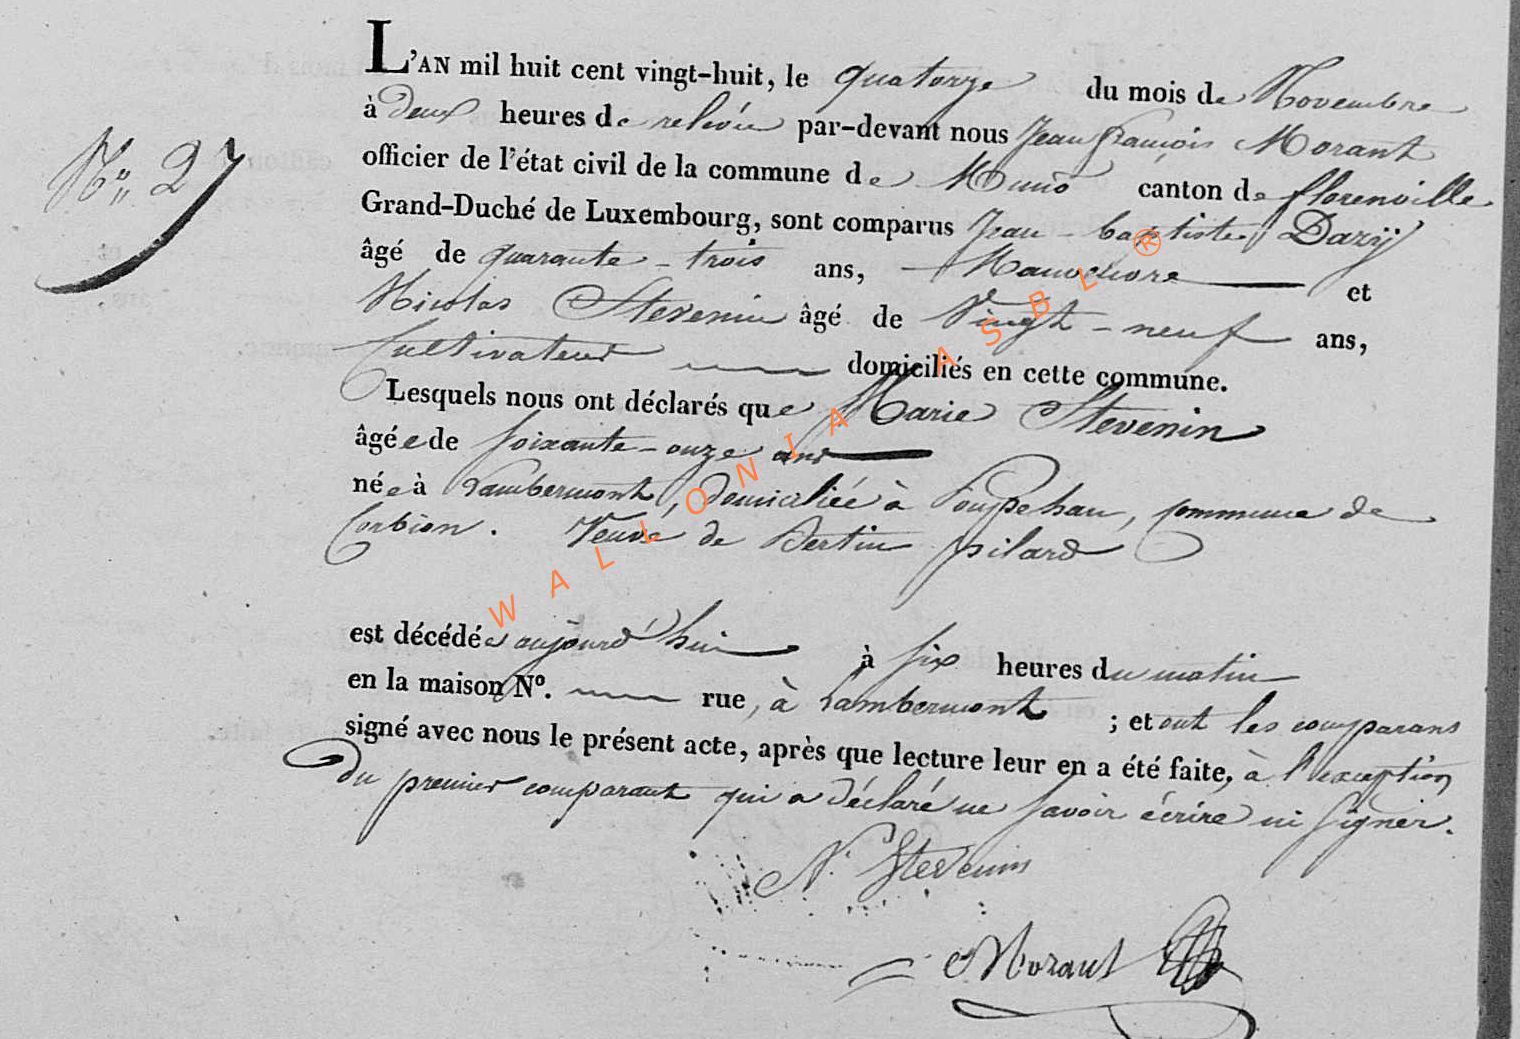 L'AN mil huit cent vingt-huit, le quatorze du mois de Novembre
à deux heures de relevée par-devant nous Jean françois Morant
N° 27
officier de l'état civil de la commune de Muno canton de florenville
Grand-Duché de Luxembourg, sont comparus Jean-baptiste Dazÿ
âgé de quarante-trois ans, Manoeuvre et
Nicolas Stevenin âgé de Vingt-neuf ans,
Cultivateur domiciliés en cette commune.
Lesquels nous ont déclarés que Marie Stevenin
âgée de soixante-onze ans
née à Lambermont, domiciliée à Poupehan, commune de
Corbion. Veuve de Bertin pilard
est décédée aujourd'hui à six heures du matin
en la maison N°. rue, à Lambermont ; et ont les comparans
signé avec nous le présent acte, après que lecture leur en a été faite, à l'exception
du premier comparant qui a déclaré ne savoir écrire ni signer.
N. Stevenin
Morant
WALLONIA ASBL ®